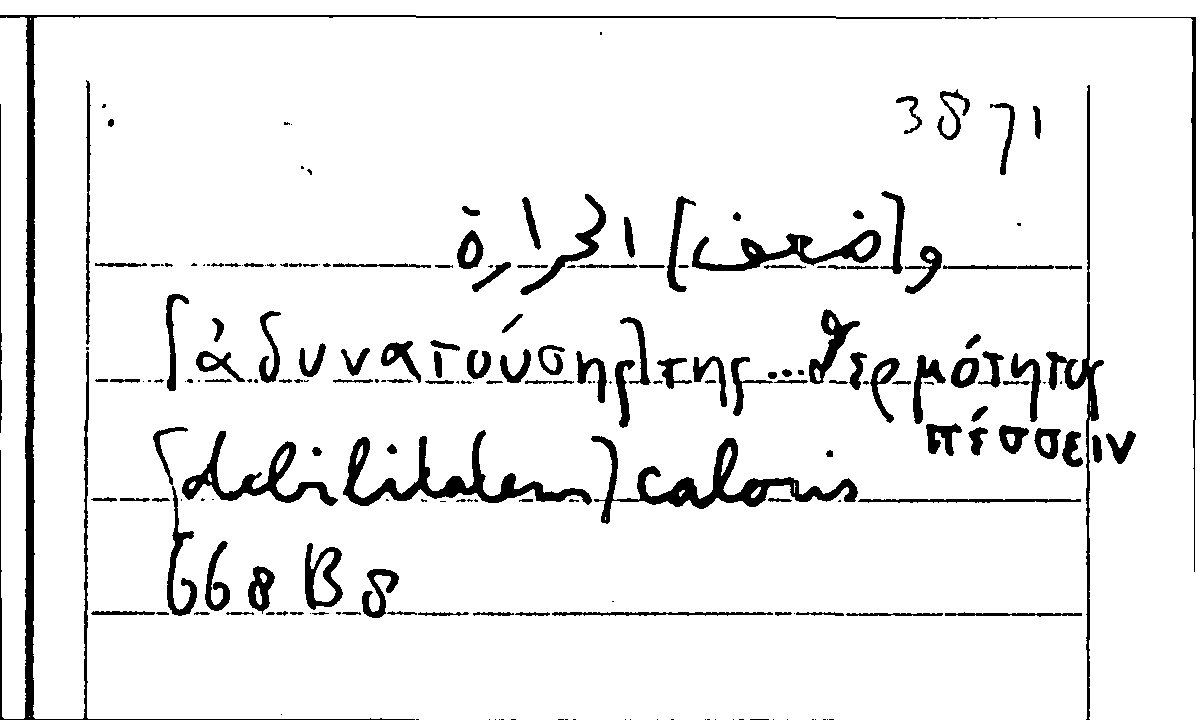 3871
و[ضعف] الحرارة
[ἀδυνατούσης] της...θερμότητος
πέσσειν
[debilitatem] caloris
668 B 8